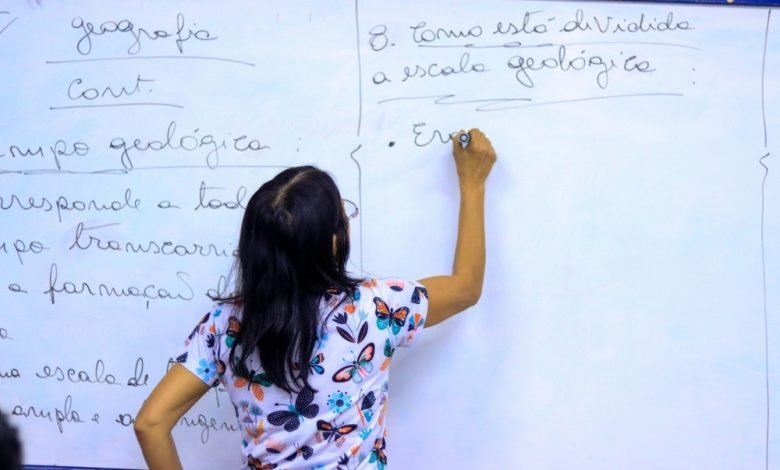 geografia
Cont.
empo geológico :
rresponde a tod
po transcorri
a formação d
a
escala de
ampla e
8. Como está dividida
a escala geológica :
• Er